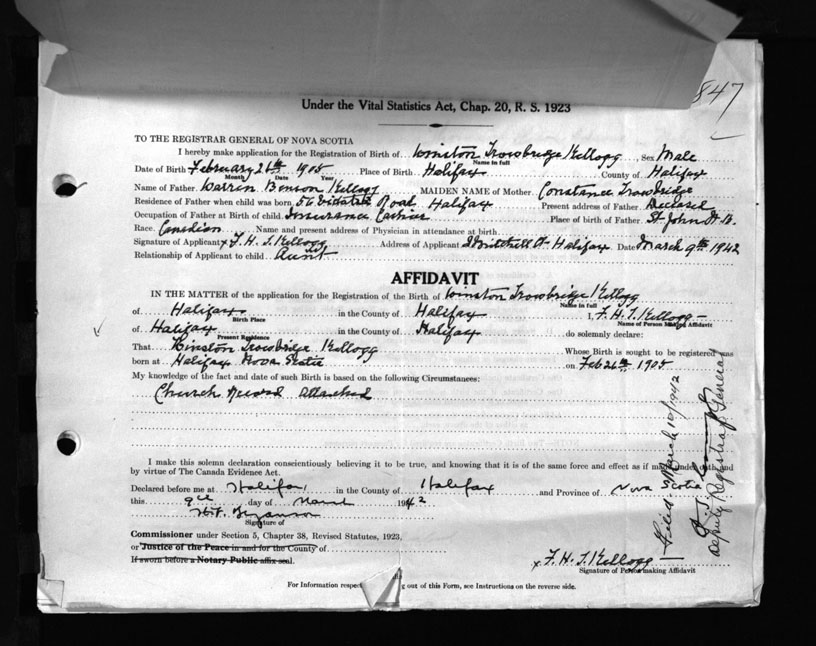 847
Under the Vital Statistics Act, Chap. 20, R. S. 1923
TO THE REGISTRAR GENERAL OF NOVA SCOTIA
I hereby make application for the Registration of Birth of Winston Trowbridge Kellogg Sex Male
Name in full
Date of Birth February 26th 1905 Place of Birth Halifax County of Halifax
Month Date Year
Name of Father Warren Benson Kellogg MAIDEN NAME of Mother Constance Trowbridge
Residence of Father when child was born 56 Road Halifax Present address of Father Deceased
Occupation of Father at Birth of child Insurance Place of birth of Father St. John N.B.
Race Canadian Name and present address of Physician in attendance at birth
Signature of Applicant x F. H. T. Kellogg Address of Applicant Halifax Date March 9th 1942
Relationship of Applicant to child Aunt
AFFIDAVIT
IN THE MATTER of the application for the Registration of the Birth of Winston Trowbridge Kellogg
Name in full
of Halifax in the County of Halifax I, F. H. T. Kellogg
Birth Place Name of Person Making Affidavit
of Halifax in the County of Halifax do solemnly declare:
Present Residence
That Winston Trowbridge Kellogg Whose Birth is sought to be registered was
born at Halifax Nova Scotia on Feb 26th 1905
My knowledge of the fact and date of such Birth is based on the following Circumstances:
Church Record attached
I make this solemn declaration conscientiously believing it to be true, and knowing that it is of the same force and effect as if made under oath and
by virtue of The Canada Evidence Act.
Declared before me at Halifax in the County of Halifax and Province of Nova Scotia
this 9th day of March 1942
Signature of
Commissioner under Section 5, Chapter 38, Revised Statutes, 1923,
or Justice of the Peace in and for the County of
If sworn before a Notary Public affix seal.
x F. H. T. Kellogg
Signature of Person making Affidavit
For Information respect g out of this Form, see Instructions on the reverse side.
Filed March 10/1942
Deputy Registrar General